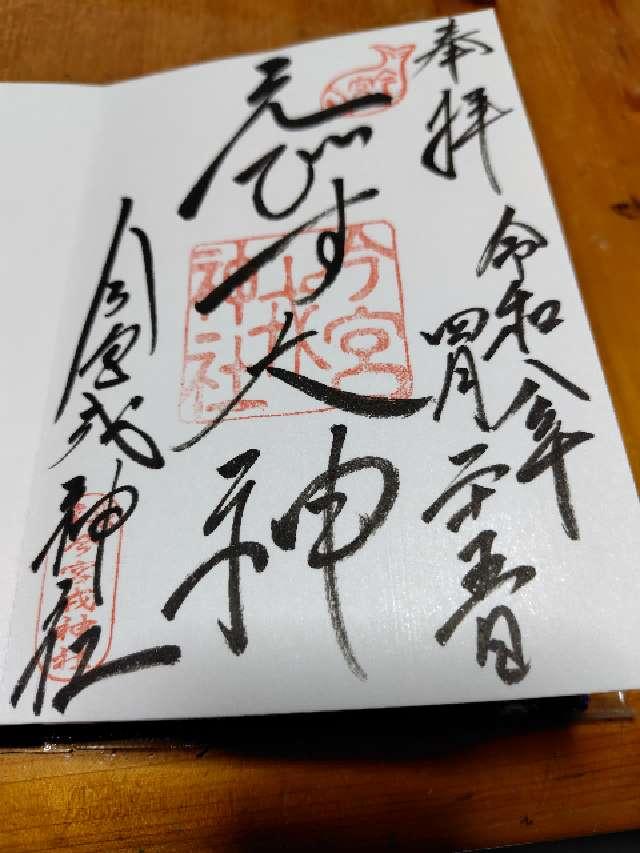 奉拝
令和八年
四月二十五日
えびす大神
今宮戎神社
今宮
戎
神社
今宮戎神社